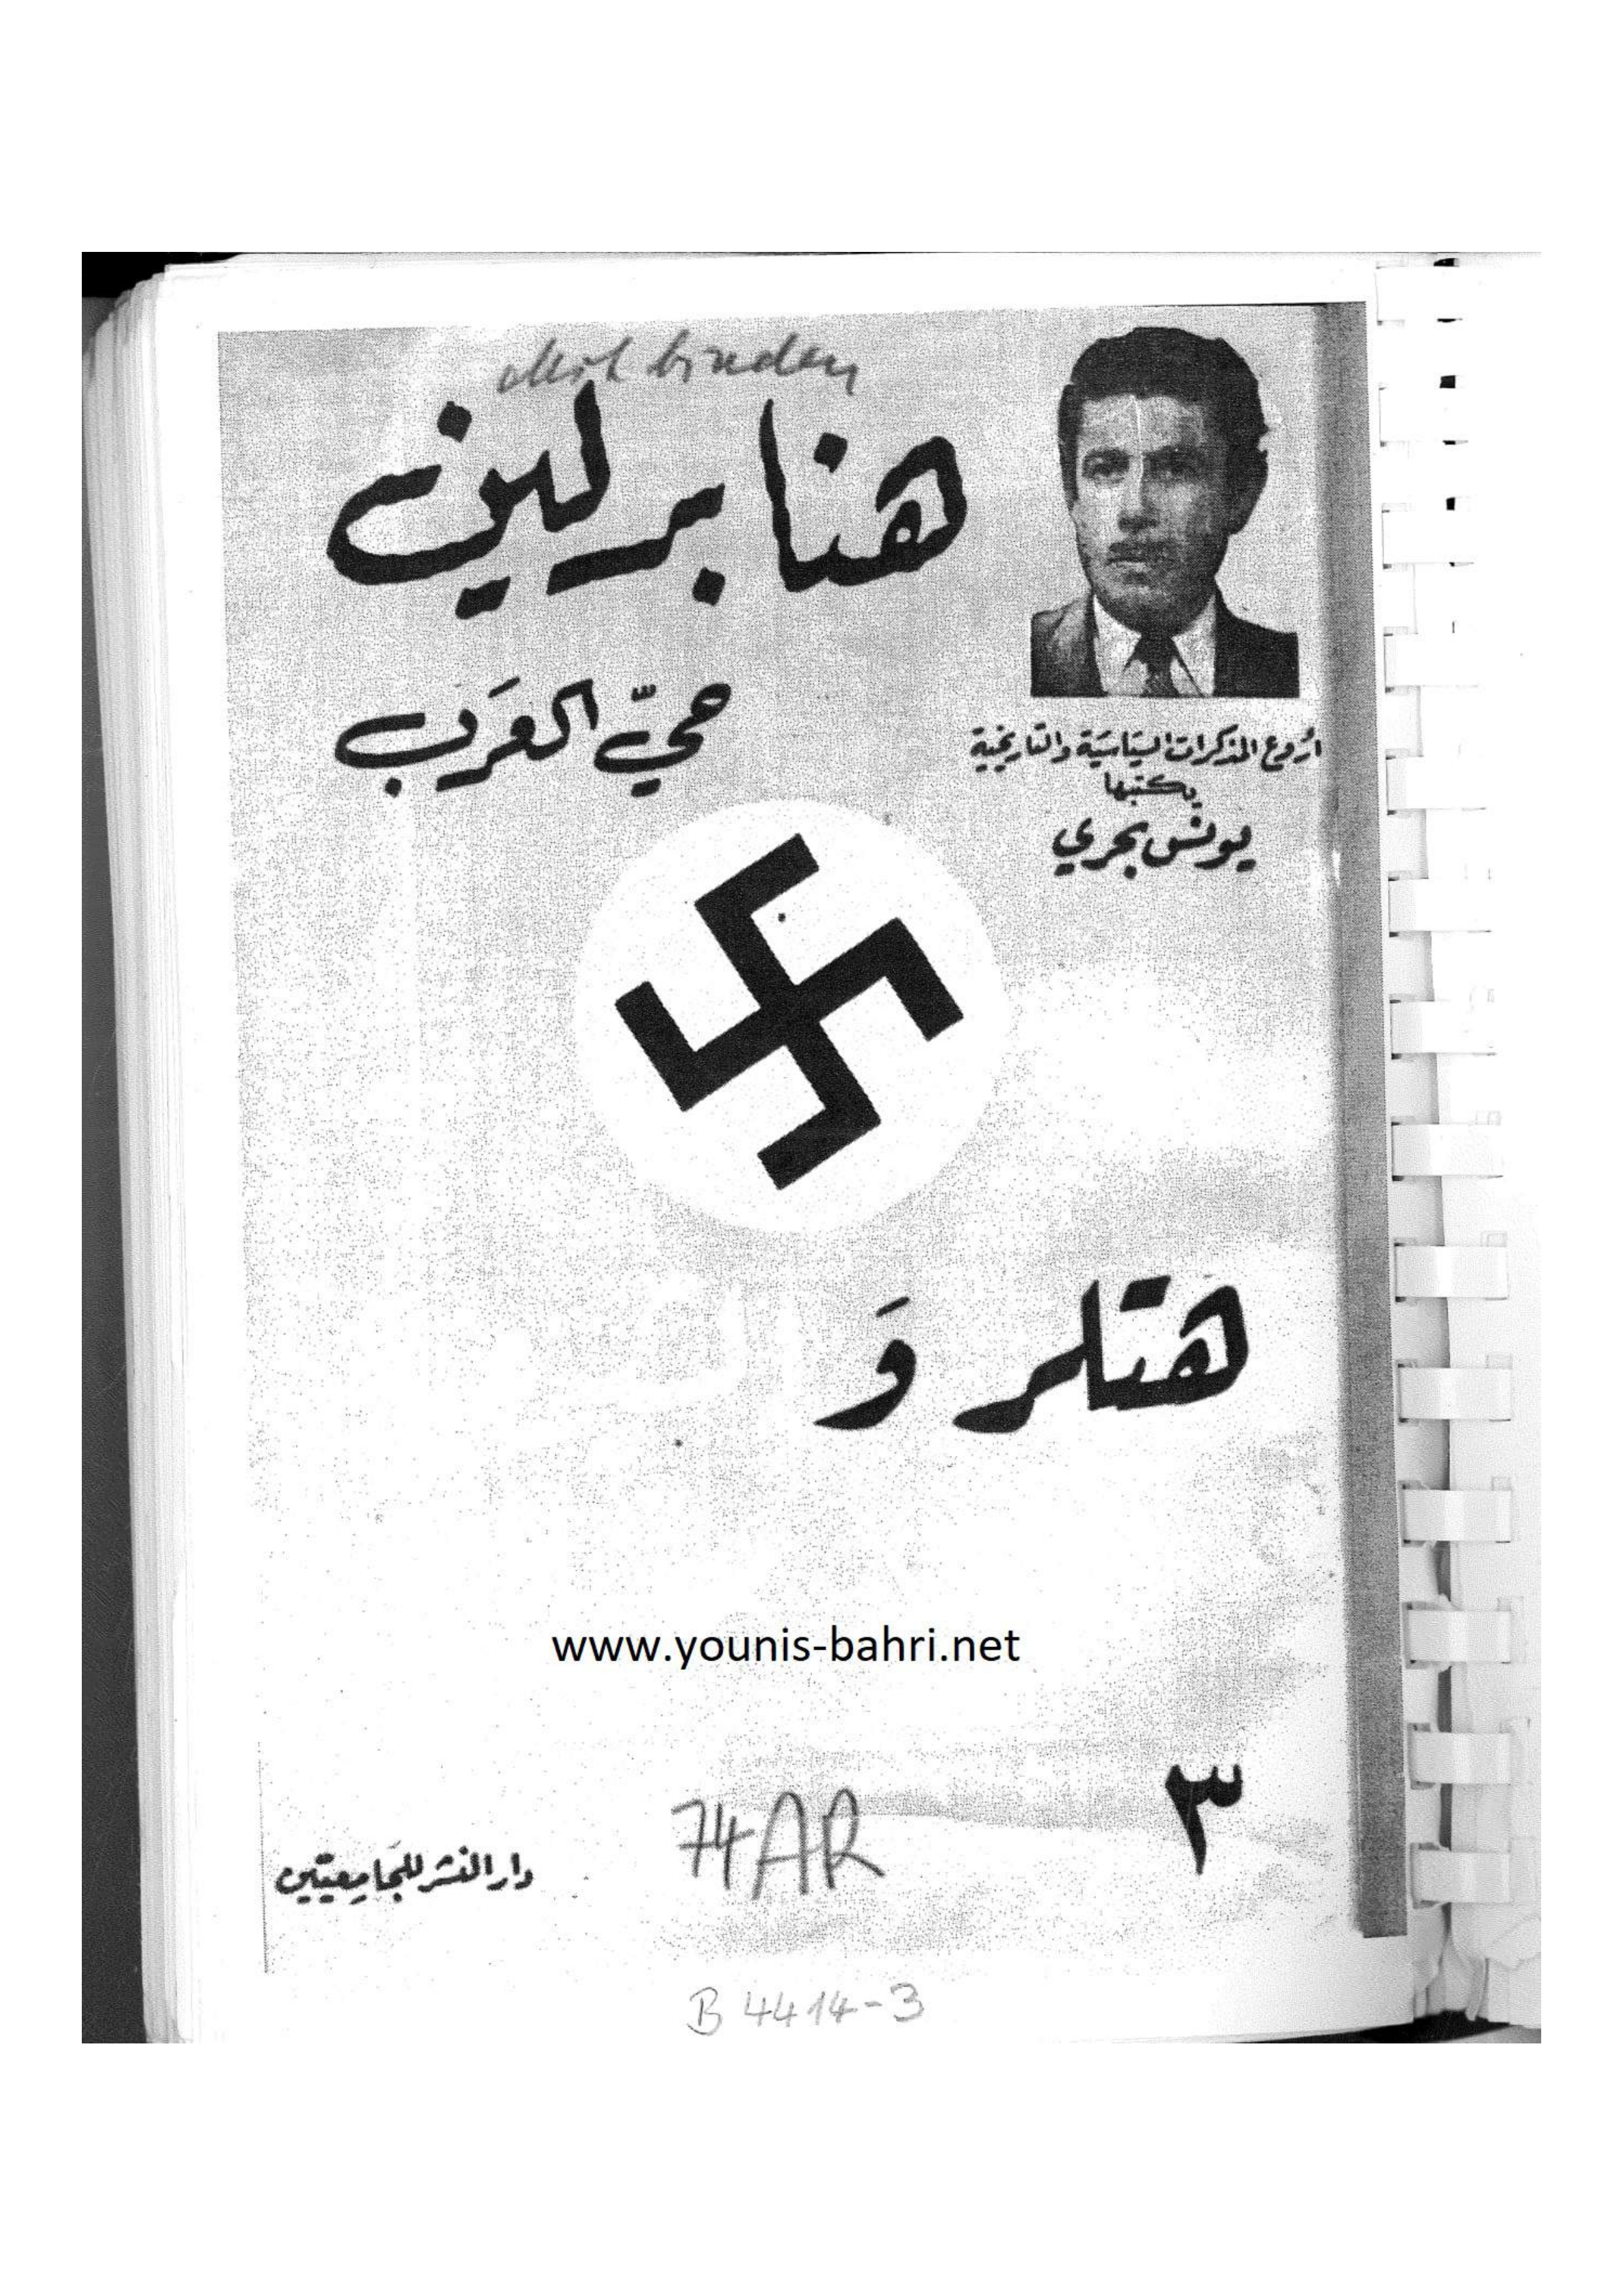 هنا برلين
حيّ العَرَب
أروع المذكرات السياسيَة والتاريخية
يكتبها
يونس بحري
هتلر وَ
www.younis-bahri.net
٣
74 AR
دار النشر للجَامِعيّين
B 4414-3